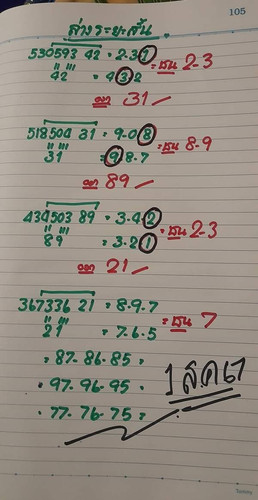 105
ล่างระยะสั้น
530593 42 = 2-3-1
" "' = เน้น 2-3
42 = 4 3 2
ออก 31
518504 31 = 9-0-8
" "' = เน้น 8-9
31 = 9-8-7
ออก 89
434503 89 = 3-4-2
" "' = เน้น 2-3
89 = 3-2-1
ออก 21
367336 21 = 8-9-7
" "' = เน้น 7
21 = 7-6-5
= 87-86-85
97-96-95
77-76-75 =
1 สค 67